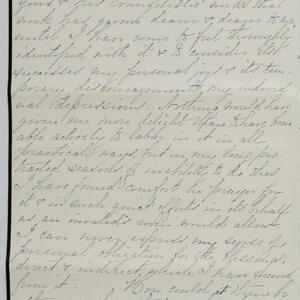 yours, & his evangelistic work that
work has grown dearer & dearer to me,
until I have come to feel thoroughly
identified with it & to consider its
successes my personal joys & its tem-
porary discouragements my individ-
ual depressions. Nothing would have
given me more delight than to have been
able actively to labor in it in all
practical ways, but in my long, pro-
tracted seasons of inability to do this
I have found comfort in prayer for
it & in such quiet efforts in its behalf
as an invalid's room would allow.
I can never express my sense of
personal obligation for the blessings,
direct & indirect, which I have received
from it. How could it be